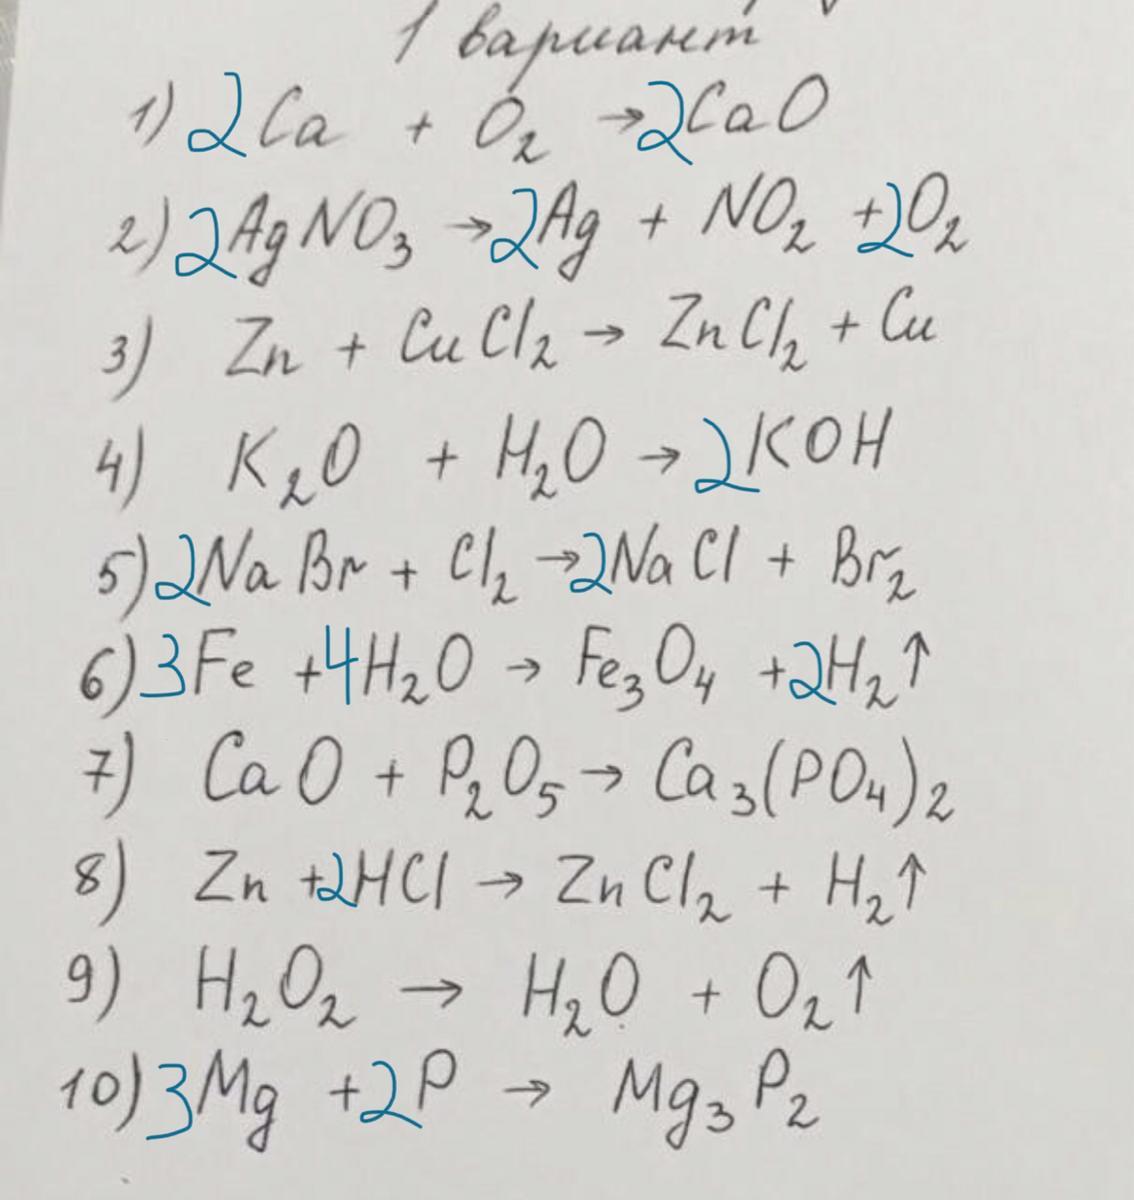 1 вариант
1) 2Ca + O₂ → 2CaO
2) 2AgNO₃ → 2Ag + NO₂ + 2O₂
3) Zn + CuCl₂ → ZnCl₂ + Cu
4) K₂O + H₂O → 2KOH
5) 2NaBr + Cl₂ → 2NaCl + Br₂
6) 3Fe + 4H₂O → Fe₃O₄ + 2H₂↑
7) CaO + P₂O₅ → Ca₃(PO₄)₂
8) Zn + 2HCl → ZnCl₂ + H₂↑
9) H₂O₂ → H₂O + O₂↑
10) 3Mg + 2P → Mg₃P₂